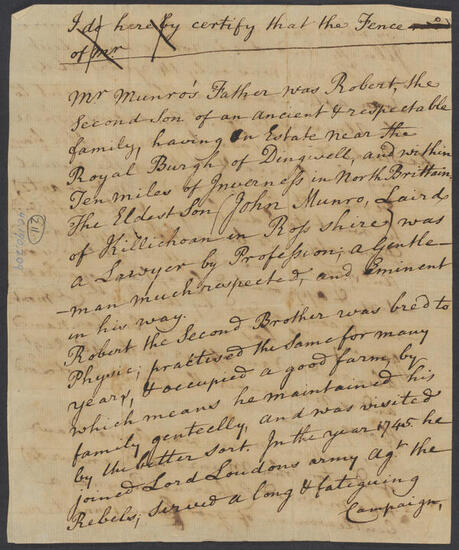 I do hereby certify that the Fence
of mr
Mr Munro's Father was Robert, the
Second Son of an ancient & respectable
family, having an Estate near the
Royal Burgh of Dingwell, and within
Ten miles of Inverness in North Brittain.
The Eldest Son (John Munro, Laird
of Killichoan in Ross shire) was
a Lawyer by Profession; a Gentle-
-man much respected, and Eminent
in his way.
Robert the Second Brother was bred to
Physic; practised the same for many
years, & occupied a good farm, by
which means he maintained his
family genteelly, and was visited
by the better sort. In the year 1745. he
joined Lord Loudons army agt. the
Rebels; served a long & fatiguing
Campaign,